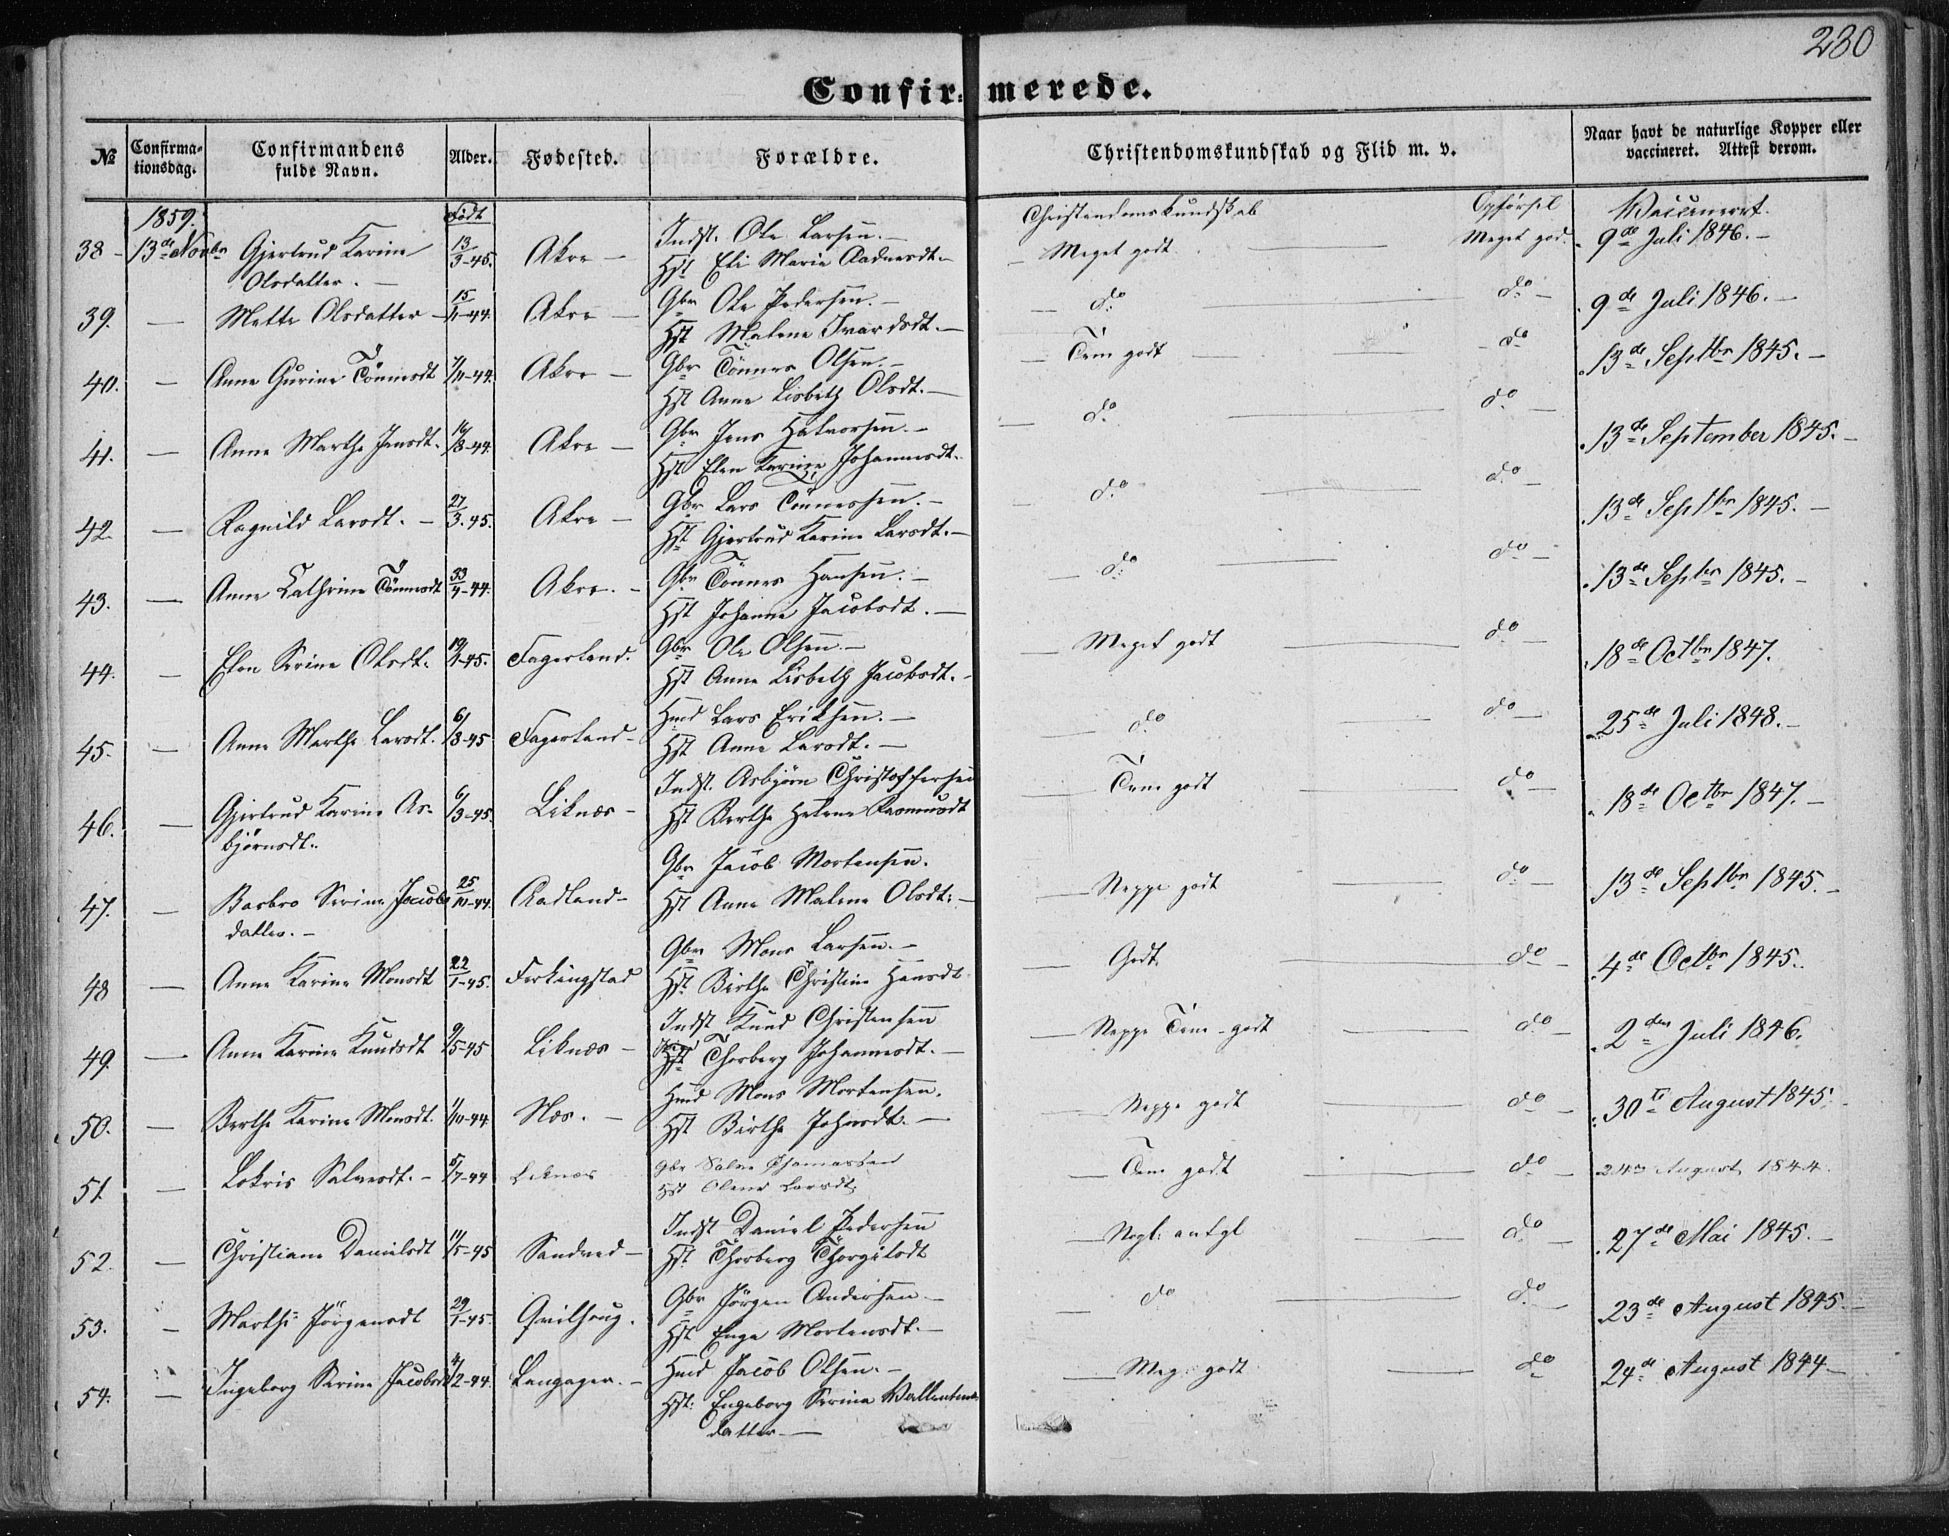 230
Confirmerede.
№ Confirmationsdag. Confirmandens fulde Navn. Alder. Fødested. Forældre. Christendomskundskab og Flid m. v. Naar havt de naturlige Kopper eller vaccineret. Attest derom.
1859. Født Christendomskundskab Opførsel Vaccineret.
38 - 13de Novbr Gjertrud Karine Olsdatter. - 13/3-45. Akre - Indst. Ole Larsen. - Hst Eli Marie Aadnesdt. - Meget godt Meget god. 9de Juli 1846. -
39. - Mette Olsdatter - 15/11-44. Akre - Gbr Ole Pedersen. - Hst Malene Ivarsdt. - do do - 9de Juli 1846. -
40. - Anne Gurine Tönnesdt 7/11-44. Akre - Gbr Tönnes Olsen. - Hst Anne Lisbeth Olsdt. - Tem godt do 13de Septbr 1845. -
41. - Anne Marthe Jensdt. 16/8-44. Akre - Gbr Jens Halvorsen. - Hst Elen Karine Johannesdt. do do - 13de September 1845. -
42. - Ragnild Larsdt. - 27/3-45. Akre - Gbr Lars Tönnessen. - Hst Gjertrud Karine Larsdt. - do do - 13de Septbr 1845. -
43. - Anne Cathrine Tönnesdt -44. Akre. - Gbr Tönnes Hansen. - Hst Johanne Jacobsdt. - do do - 13de Septbr 1845. -
44. - Elen Serine Olsdt. -45. Fagerland. Gbr Ole Olsen. - Hst Anne Lisbeth Jacobsdt. - Meget godt do - 18de Octbr 1847.
45. - Anne Marthe Larsdt. 6/3-45 Fagerland - Hmd Lars Eriksen. - Hst Anne Larsdt. - do do - 25de Juli 1848. -
46. - Gjertrud Karine Asbjørnsdt. 6/3-45. Liknæs - Indst. Asbjørn Christoffersen Hst Berthe Helene Rasmusdt Tem godt do - 18de Octbr 1847. -
47. - Barbro Serine Jacobsdatter. - 25/10-44. Aadland - Gbr Jacob Mortensen. Hst Anne Malene Olsdt: - Neppe godt do - 13de Septbr 1845. -
48 - Anne Karine Monsdt 22/1-45. Ferkingstad Gbr Mons Larsen. - Hst Birthe Christine Hansdt Godt do - 4de Octbr 1845.
49. - Anne Karine Knudsdt 9/5-45 Liknæs - Indst Knud Christensen Hst Thorberg Johannesdt. - Neppe Tem-godt do - 2den Juli 1846.
50. - Berthe Karine Monsdt. 1/10-44. Næs. - Hmd Mons Mortensen. Hst Birthe Johnsdt. - Neppe godt do - 30te August 1845.
51. - Lokris Salvesdt. - 5/7-44 Liknæs Gbr Salve Thomassen Hst Olene Larsdt Tem godt do - 24de August 1844.
52. - Christiane Danielsdt 11/5-45 Sandved - Indst Daniel Pedersen Hst Thorberg Thorgilsdt Nogl: antgl do - 27de Mai 1845. -
53. - Marthe Jörgensdt 29/1-45. Qvilhoug. Gbr Jörgen Andersen - Hst Enge Mortensdt. - do do - 23de August 1845. -
54. - Ingeborg Serine Jacobsdt 4/2-44. Langager. - Hmd Jacob Olsen. - Hst: Engeborg Serine Vallentinsdatter - Meg: godt do 24de August 1844 -